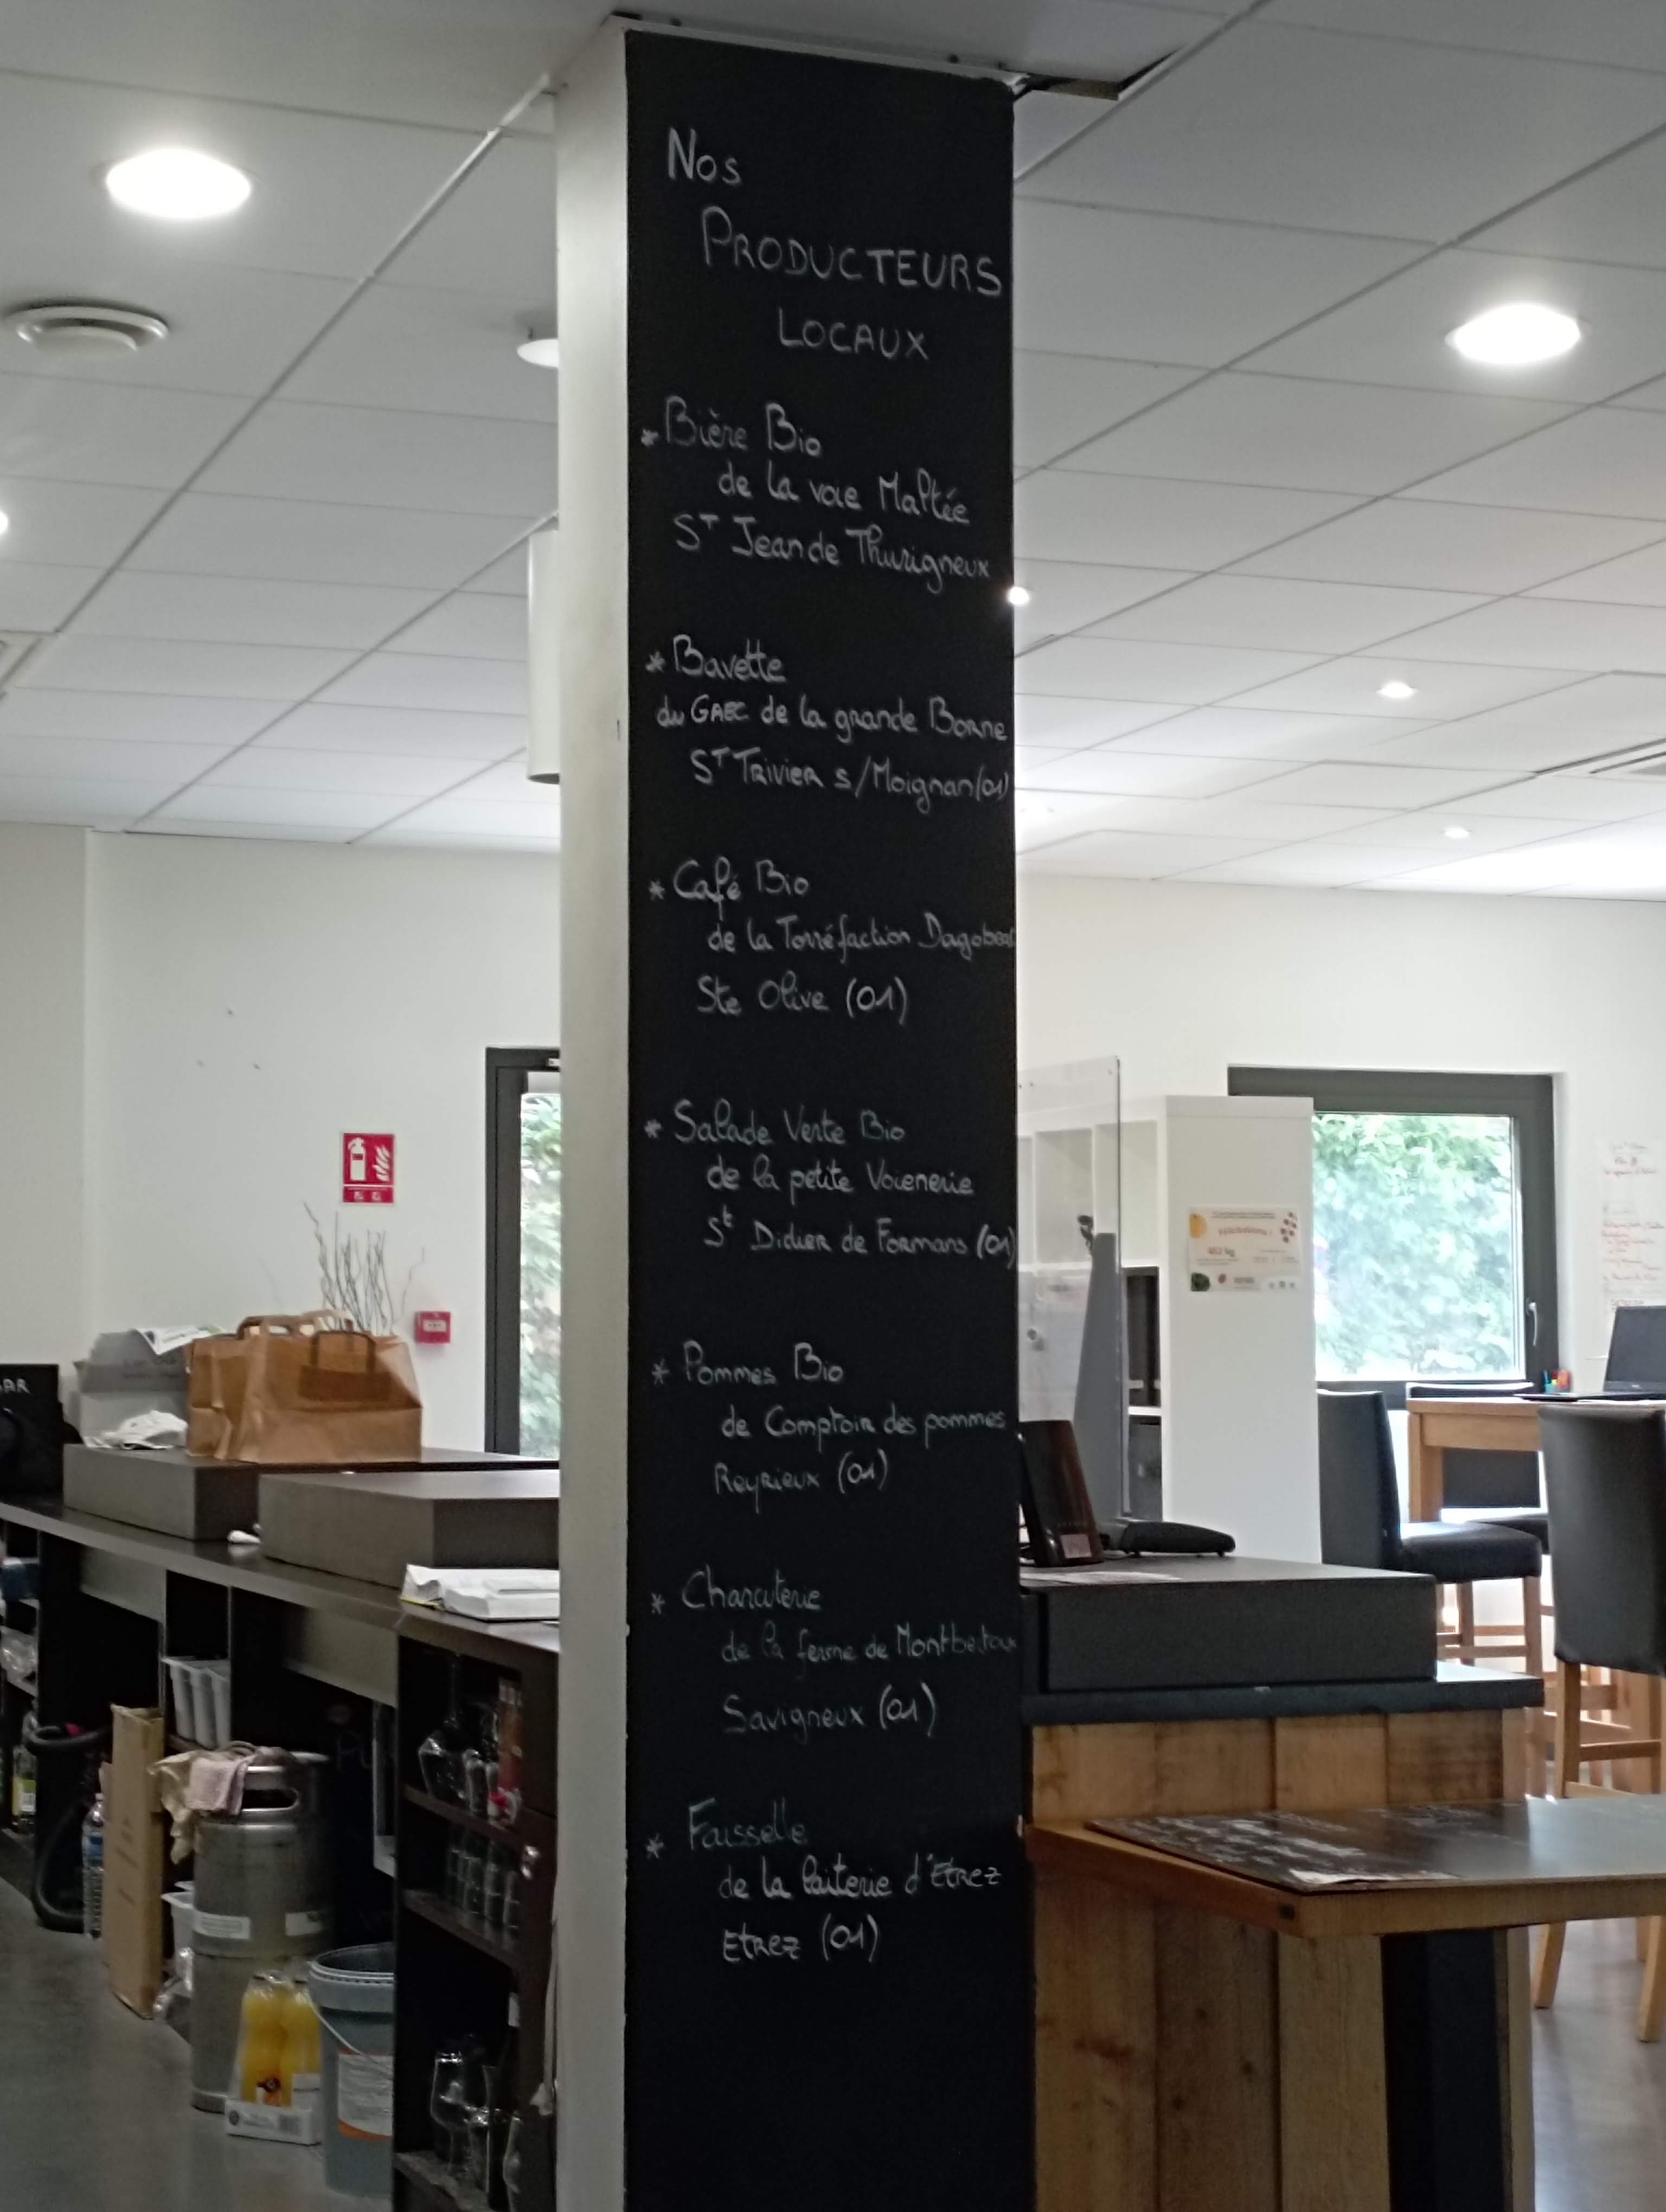 Nos
PRODUCTEURS
LOCAUX
* Bière Bio
de la voie Maltée
ST Jean de Thurigneux
* Bavette
du GAEC de la grande Borne
ST TRIVIER s/Moignan(01)
* Café Bio
de la Torréfaction Dagobert
Ste Olive (01)
* Salade Verte Bio
de la petite Voienerie
St Didier de Formans (01)
* Pommes Bio
de Comptoir des pommes
Reyrieux (01)
* Charcuterie
de la ferme de Montbertoux
Savigneux (01)
* Faisselle
de la laiterie d'Etrez
Etrez (01)